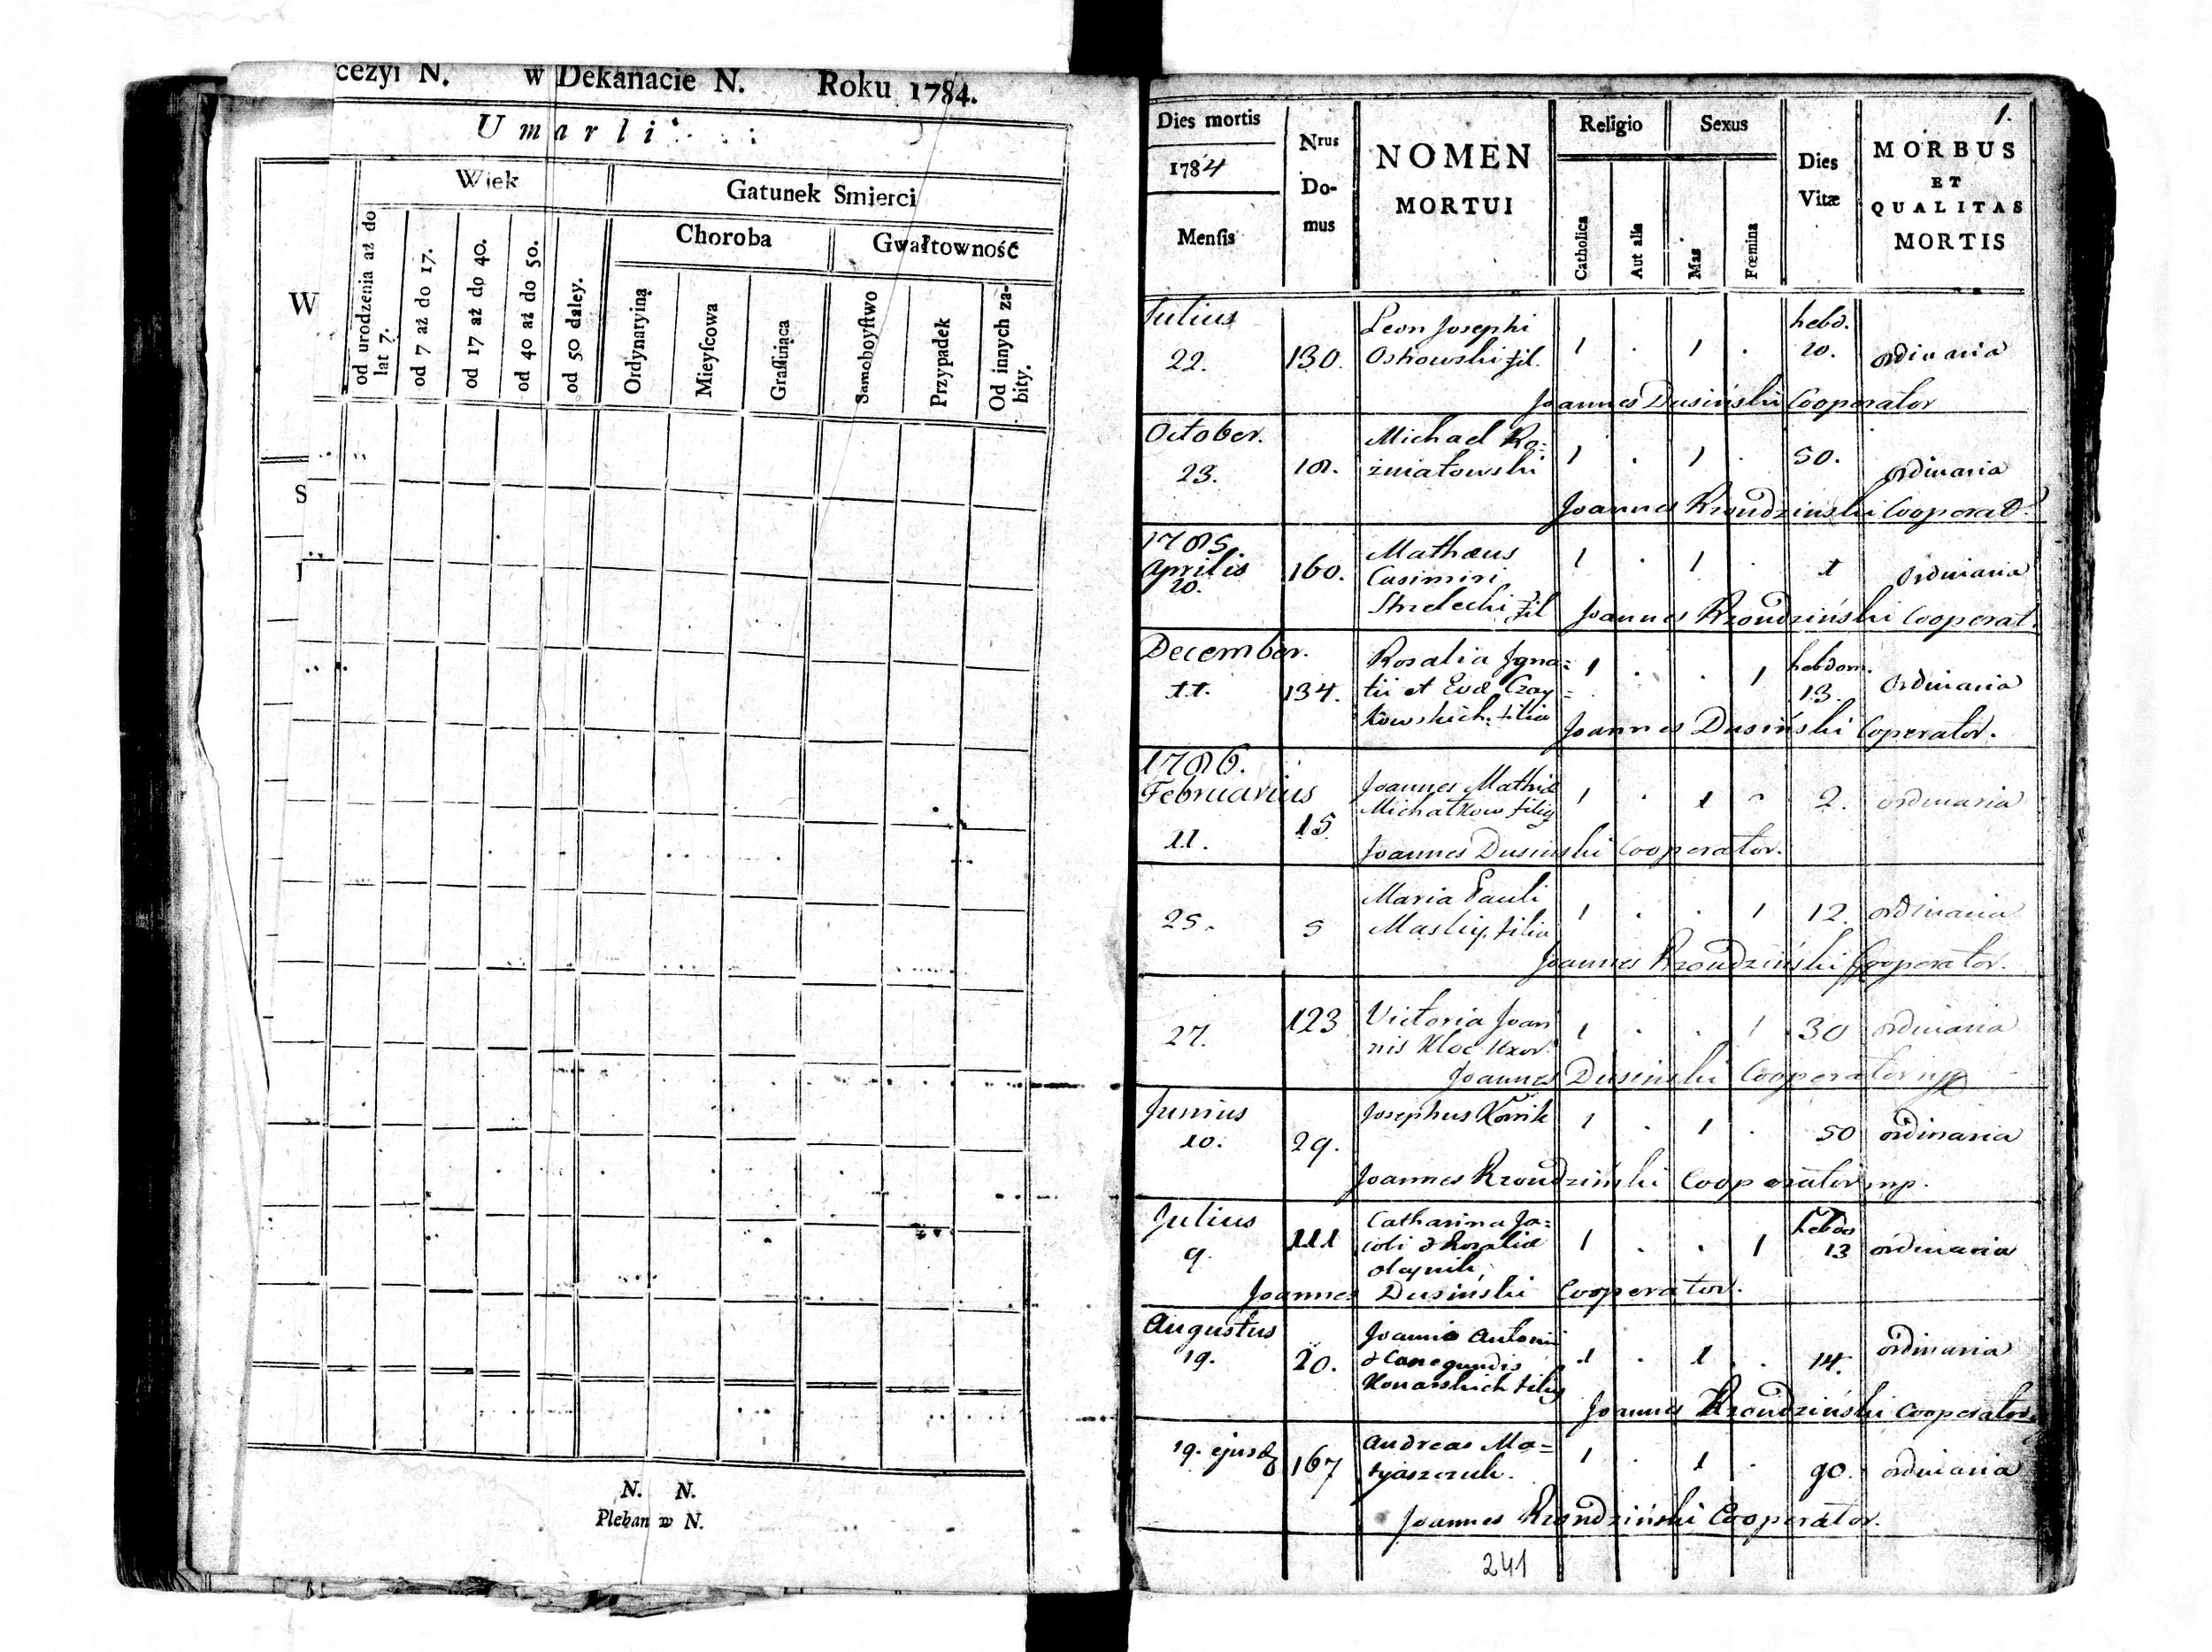 cezyi N. w Dekanacie N. Roku 1784.
Umarli
Wiek
Gatunek Smierci
W
Choroba
Gwałtowność
od urodzenia aż do lat 7.
od 7 aż do 17.
od 17 aż do 40.
od 40 aż do 50.
od 50 daley.
Ordynaryiną
Mieyscowa
Grassuiąca
Samoboystwo
Przypadek
Od innych zabity.
S
N. N.
Pleban w N.
1.
Dies mortis
1784
Mensis
Nrus Domus
NOMEN
MORTUI
Religio
Catholica
Aut alia
Sexus
Mas
Fœmina
Dies
Vitæ
MORBUS
ET
QUALITAS
MORTIS
Julius
22. 130. Leon Josephi
Ostrowski fil. 1 . 1 . hebd. 20. ordinaria
Joannes Dusiński Cooperator
October.
23. 18. Michael Ro=
żniatowski 1 . 1 . 50. ordinaria
Joannes Rzondzinski Cooperat.
1785.
Aprilis
20. 160. Mathæus
Casimiri
Strzelecki fil 1 . 1 . 1 ordinaria
Joannes Rzondziński Cooperat.
December.
11. 134. Rosalia Igna=
tii et Evæ Czay=
kowskich filia 1 . . 1 hebdom. 13. ordinaria
Joannes Dusiński Coperator.
1786.
Februarius
11. 15. Joannes Mathiæ
Michatkow filig 1 . 1 . 2. ordinaria
Joannes Dusinski Cooperator.
25. 5 Maria Pauli
Masliy. filia 1 . . 1 12. ordinaria
Joannes Rzondziński Cooperator.
27. 123 Victoria Joan
nis Kloc Uxor. 1 . . 1 30 ordinaria
Joannes Dusinski Cooperator mp
Junius
10. 29. Josephus 1 . 1 . 50 ordinaria
Joannes Rzondziński Cooperator mp.
Julius
9. 111 Catharina Ja=
cobi & Rosaliæ
Olaynik 1 . . 1 hebdo 13 ordinaria
Joannes Dusiński Cooperator.
Augustus
19. 20. Joannis Antonii
& Canegundis
Konarskich filig 1 . 1 . 14. ordinaria
Joannes Rzondziński Cooperator
19. ejusd 167 Andreas Ma=
tyaszczuk. 1 . 1 . 90. ordinaria
Joannes Rzondziński Cooperator.
241